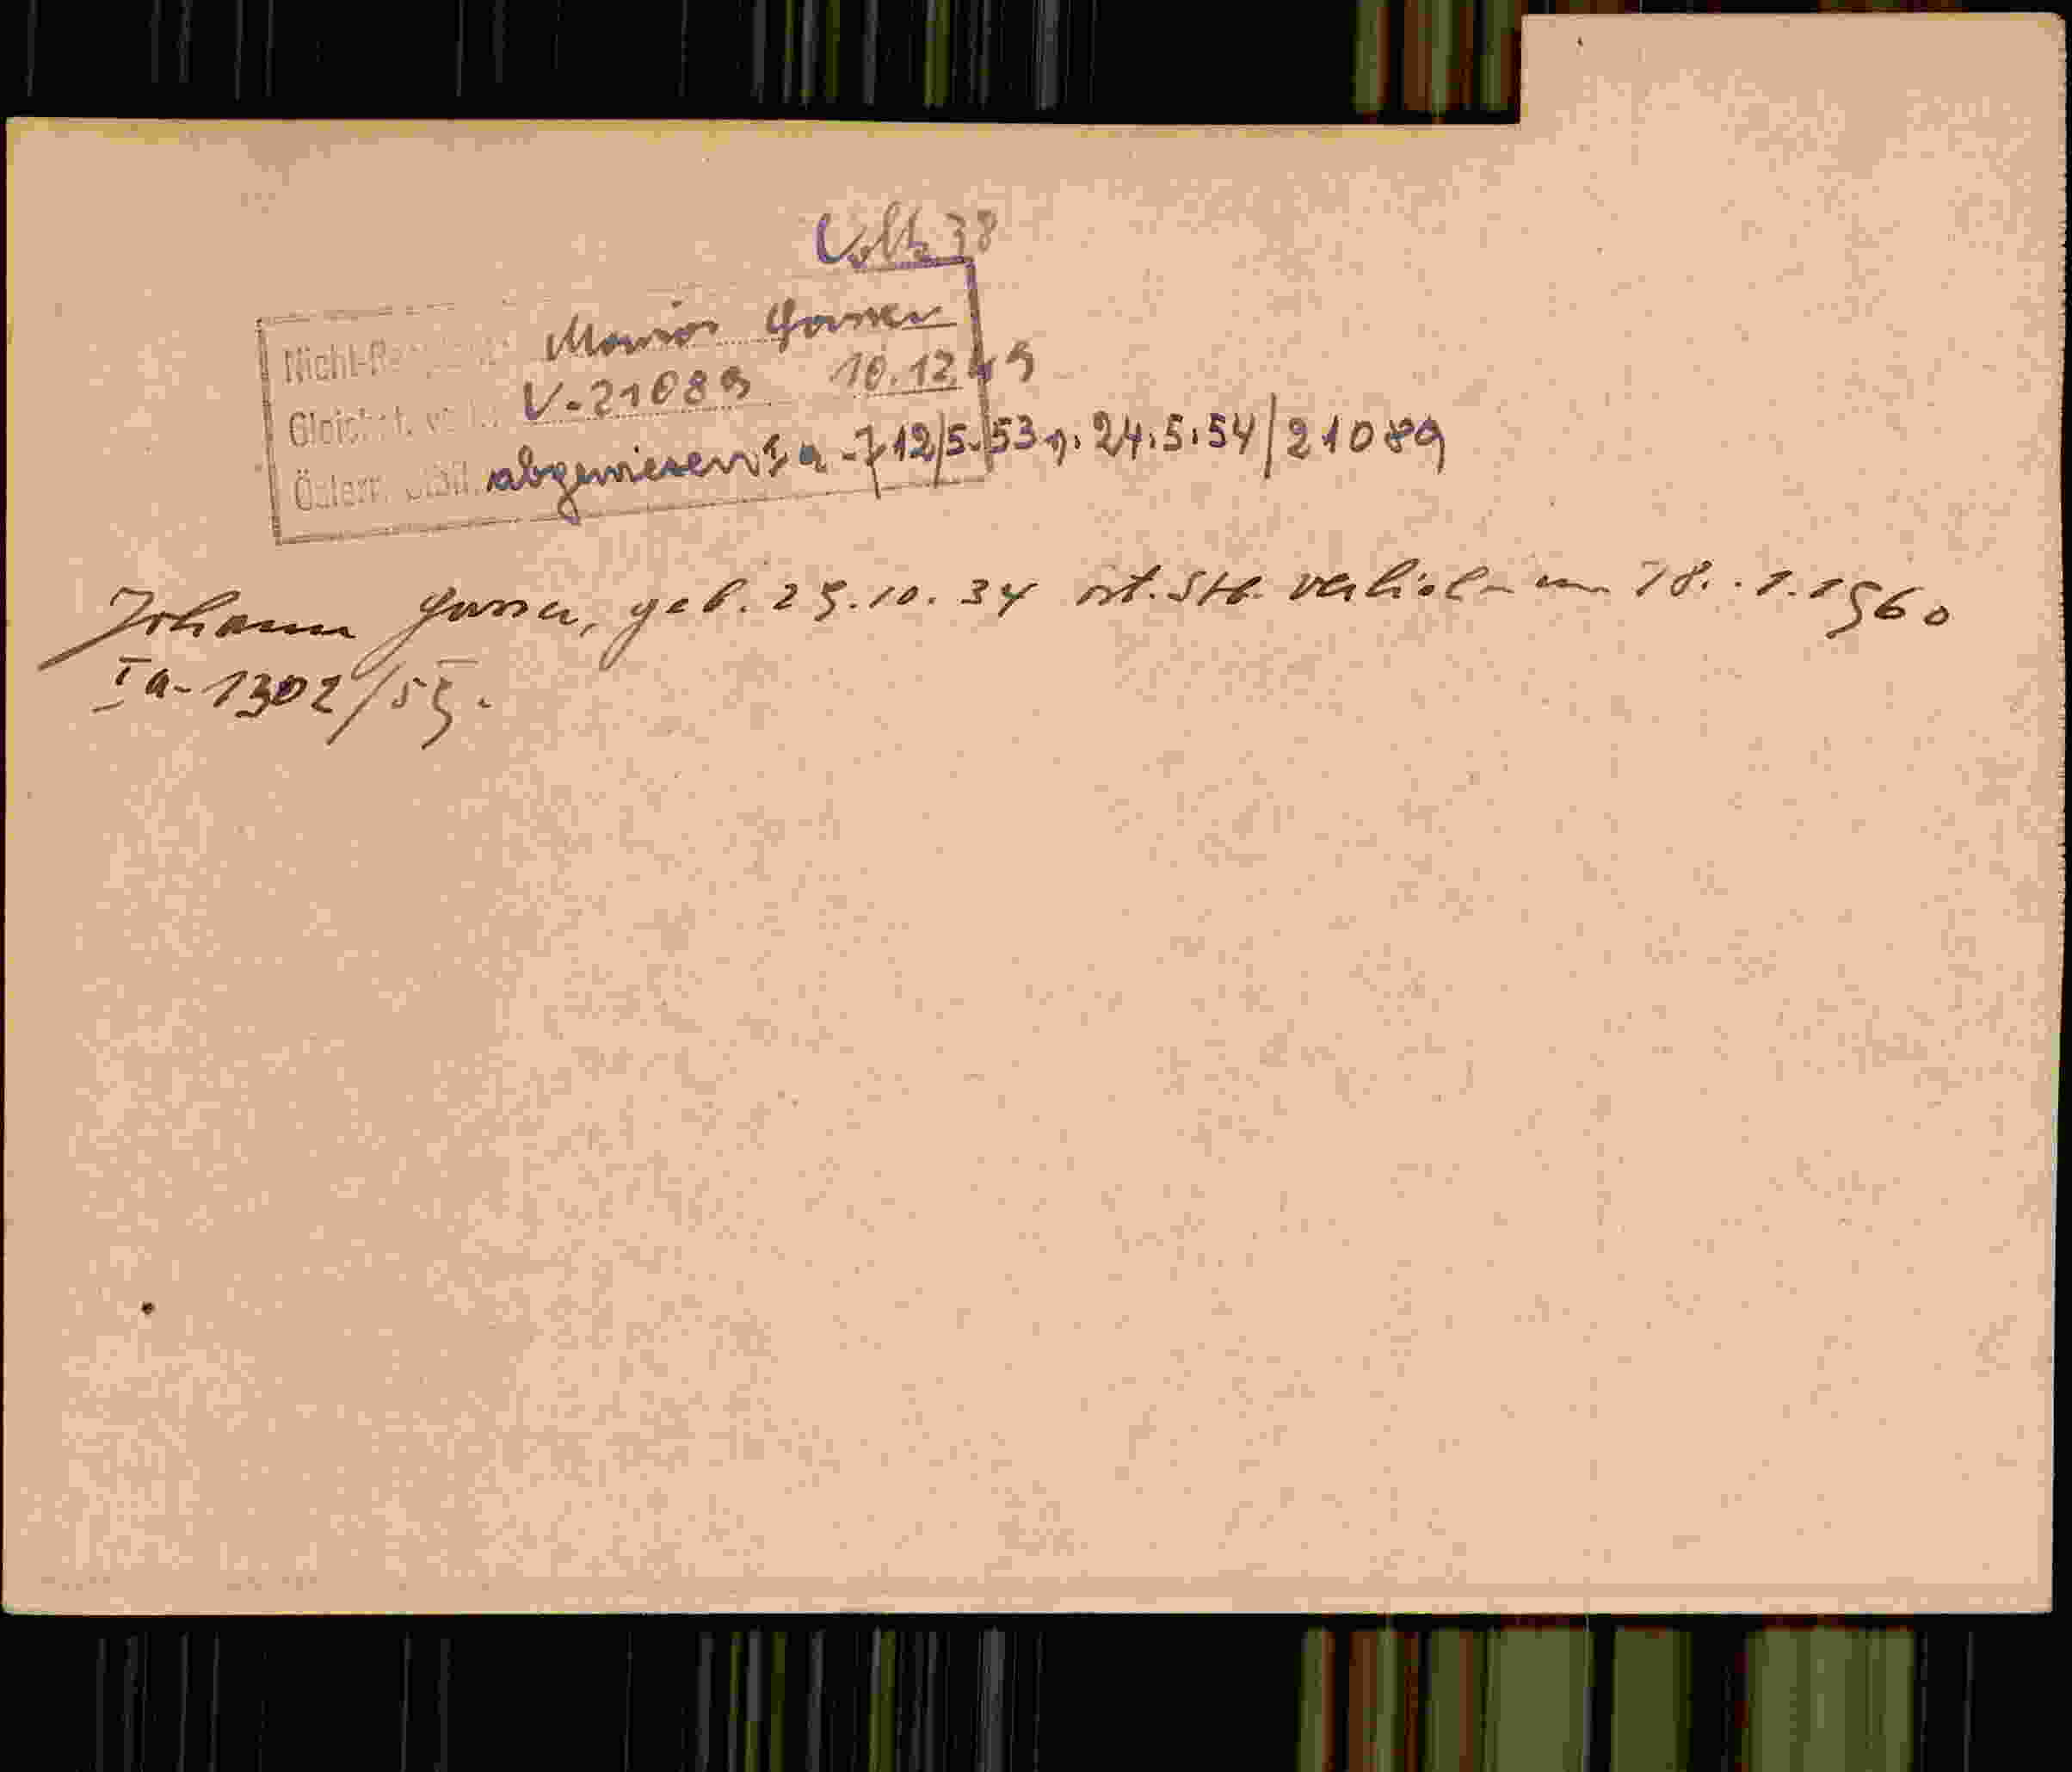 Volb 38
Nicht-Re Maria Gasser
Gleichst. V-21089 10.12.49
Österr. abgewiesen Ia-712/5.53 v. 24.5.54/21089
Johann Gasser, geb. 29.10.34 öst. Stb. verliehen am 18.1.1960
Ia-1302/59.